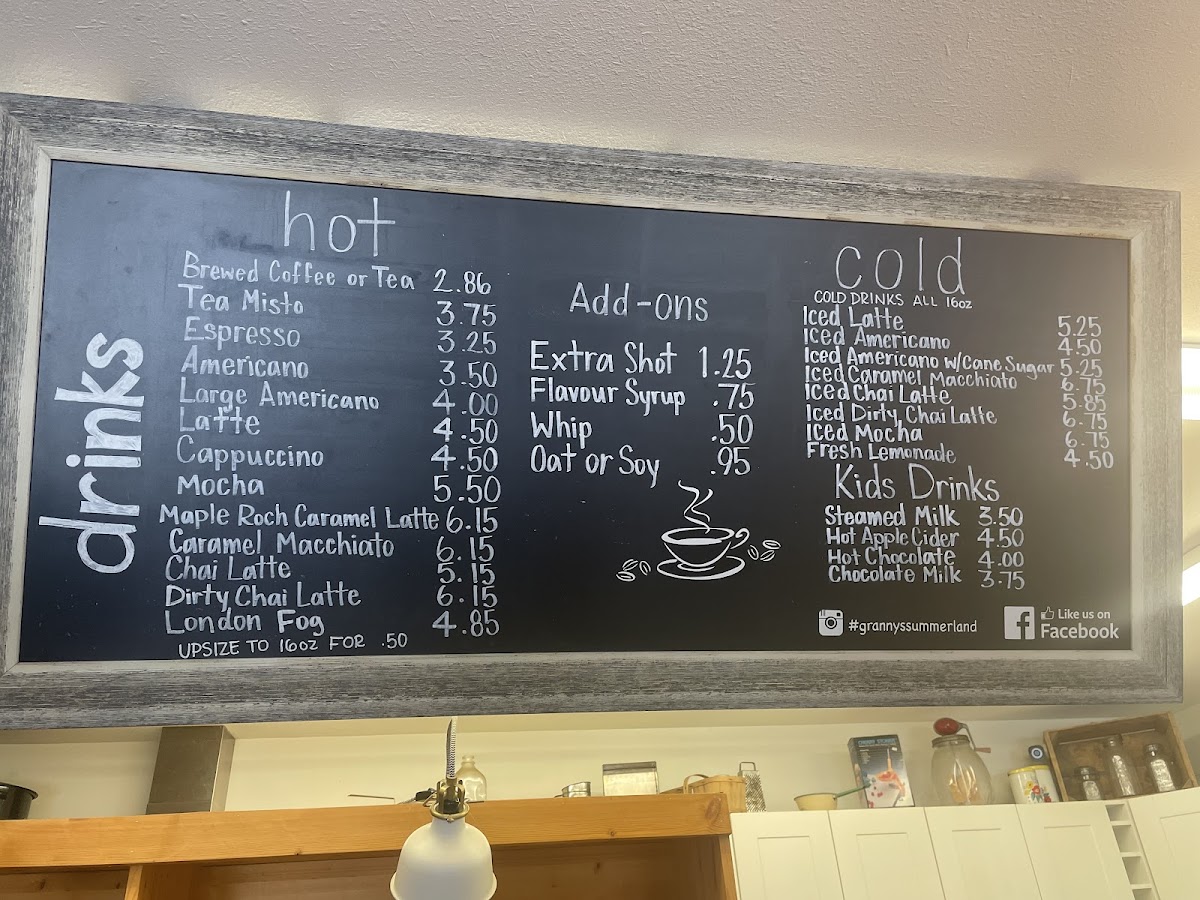 drinks
hot
Brewed Coffee or Tea 2.86
Tea Misto 3.75
Espresso 3.25
Americano 3.50
Large Americano 4.00
Latte 4.50
Cappuccino 4.50
Mocha 5.50
Maple Roch Caramel Latte 6.15
Caramel Macchiato 6.15
Chai Latte 5.15
Dirty Chai Latte 6.15
London Fog 4.85
UPSIZE TO 16OZ FOR .50
Add-ons
Extra Shot 1.25
Flavour Syrup .75
Whip .50
Oat or Soy .95
cold
COLD DRINKS ALL 16oz
Iced Latte 5.25
Iced Americano 4.50
Iced Americano w/Cane Sugar 5.25
Iced Caramel Macchiato 6.75
Iced Chai Latte 5.85
Iced Dirty Chai Latte 6.75
Iced Mocha 6.75
Fresh Lemonade 4.50
Kids Drinks
Steamed Milk 3.50
Hot Apple Cider 4.50
Hot Chocolate 4.00
Chocolate Milk 3.75
#grannyssummerland
Like us on
Facebook